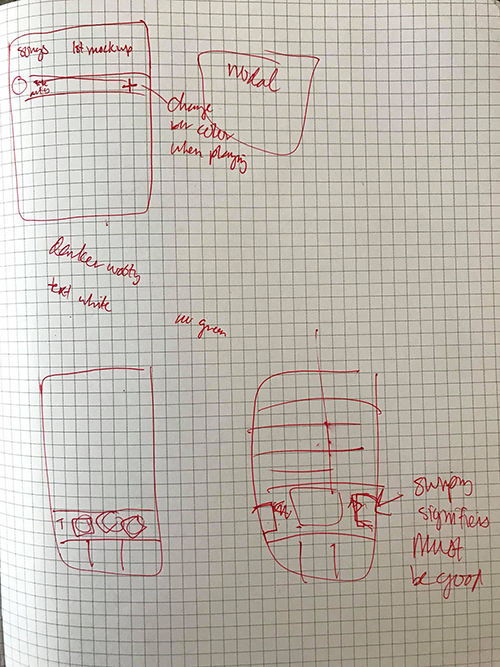 songs 1st mockup
title
artist
+
modal
change
bar color
when playing
Darker
text white
no green
swiping
signifiers
Must
be good